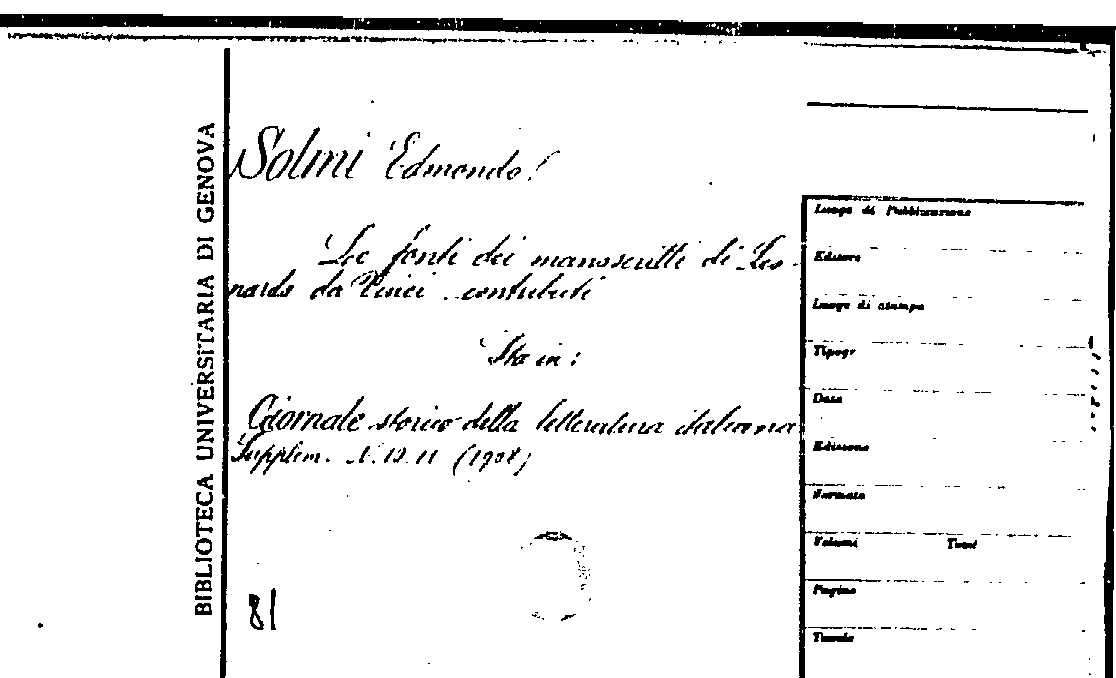 BIBLIOTECA UNIVERSITARIA DI GENOVA
Solmi Edmondo!
Le fonti dei manoscritti di Leo-
nardo da Vinci contributi
Sta in:
Giornale storico della letteratura italiana
Supplem. N. 10. 11 (1908)
81
Luogo di Pubblicazione
Editore
Luogo di stampa
Tipogr
Data
Edizione
Formato
Volumi Tomi
Pagine
Tavole